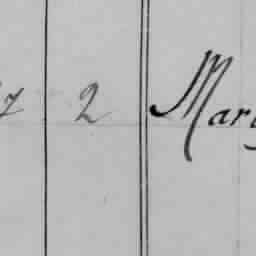 7 2 Mary